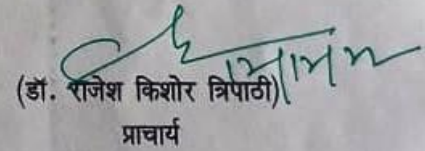 (डॉ. राजेश किशोर त्रिपाठी)
प्राचार्य